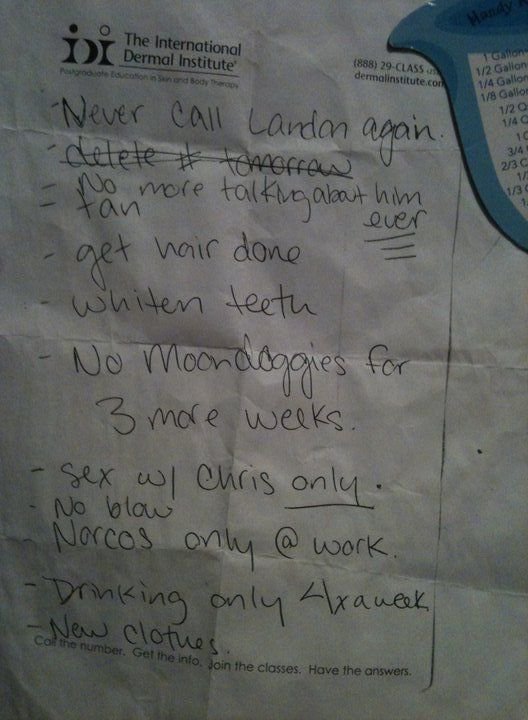 The International
Dermal Institute
Postgraduate Education in Skin and Body Therapy
(888) 29-CLASS
dermalinstitute.com
Handy
1 Gallon
1/2 Gallon
1/4 Gallon
1/8 Gallon
1/2
1/4
3/4
2/3 C
1/3
- Never call Landon again.
- delete # tomorrow
- No more talking about him
ever
- tan
- get hair done
- whiten teeth
- No Moondoggies for
3 more weeks.
- sex w/ Chris only.
- No blow
Norcos only @ work.
- Drinking only 4xaweek
- New clothes.
Call the number. Get the info. Join the classes. Have the answers.